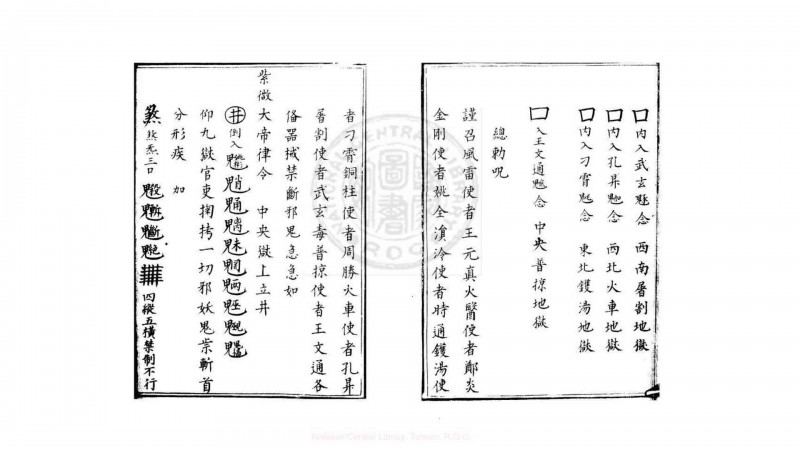 囗內入武玄魁念　西南屠割地獄
囗內入孔昇魁念　西北火車地獄
囗內入刁霄魁念　東北鑊湯地獄
囗入王文通魁念　中央普掠地獄
總勅呪
謹召風雷使者王元真火醫使者鄭炎
金剛使者姚全溟泠使者時通鑊湯使
者刁霄銅柱使者周勝火車使者孔昇
屠割使者武玄毒普掠使者王文通各
俻器械禁斷邪鬼急急如
紫微大帝律令　中央獄上立井
井倒入
仰九獄官吏掬拷一切邪妖鬼祟斬首
分形疾　加
三口　四縱五橫禁制不行
National Central Library, Taiwan, R.O.C